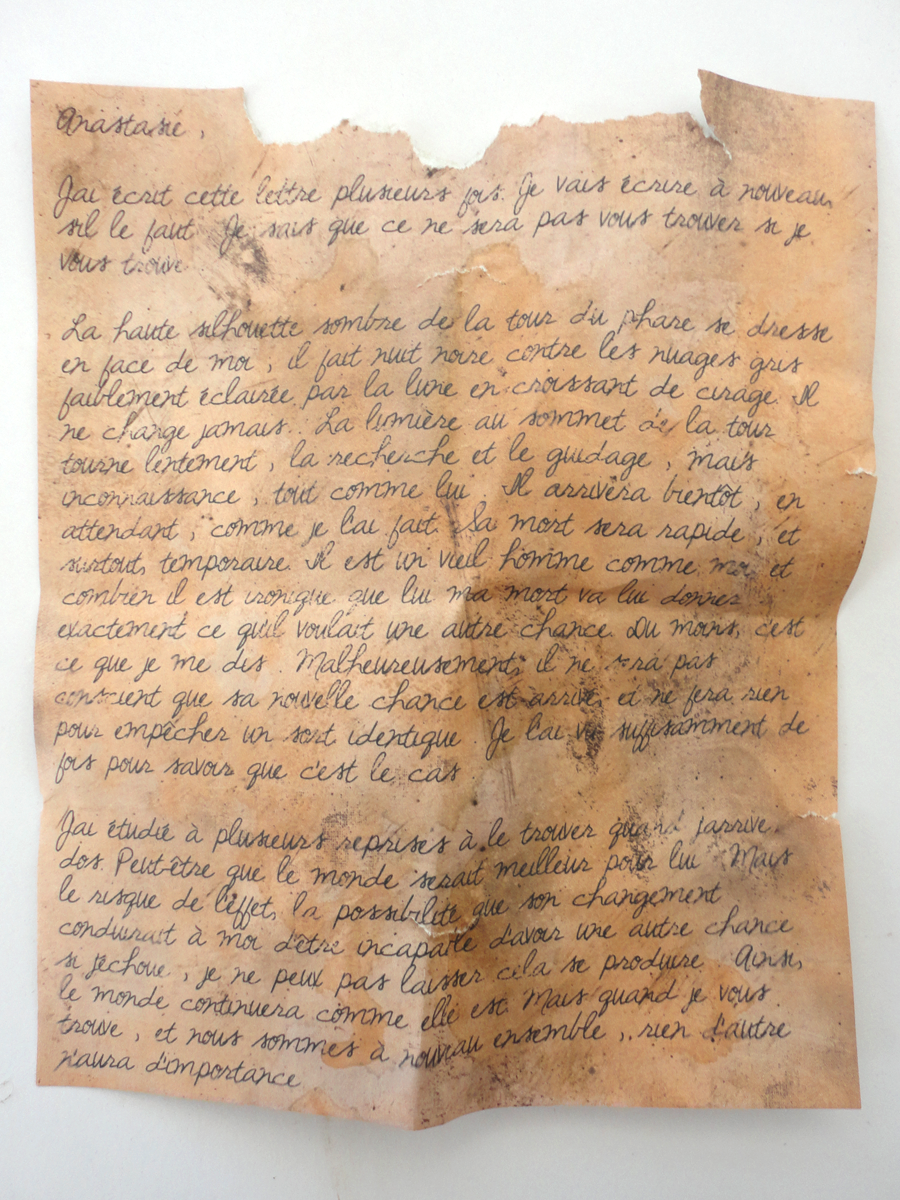 Anastasie,
Jai écrit cette lettre plusieurs fois. Je vais écrire à nouveau,
sil le faut. Je sais que ce ne sera pas vous trouver si je
vous trouve.
La haute silhouette sombre de la tour du phare se dresse
en face de moi, il fait nuit noire contre les nuages gris
faiblement éclairée par la lune en croissant de cirage. Il
ne change jamais. La lumière au sommet de la tour
tourne lentement, la recherche et le guidage, mais
inconnaissance, tout comme lui. Il arrivera bientôt, en
attendant, comme je lai fait. Sa mort sera rapide, et
surtout, temporaire. Il est un vieil homme comme moi et
combien il est ironique que lui ma mort va lui donner
exactement ce quil voulait une autre chance. Du moins, cest
ce que je me dis. Malheureusement, il ne sera pas
conscient que sa nouvelle chance est arrivé, et ne fera rien
pour empêcher un sort identique. Je lai vu suffisamment de
fois pour savoir que c'est le cas.
Jai étudié à plusieurs reprises à le trouver quand jarrive.
dos. Peut-être que le monde serait meilleur pour lui. Mais
le risque de l'effet, la possibilité que son changement
conduirait à moi d'être incapable d'avoir une autre chance
si jéchoue, je ne peux pas laisser cela se produire. Ainsi,
le monde continuera comme elle est. Mais quand je vous
trouve, et nous sommes à nouveau ensemble, rien d'autre
n'aura d'importance